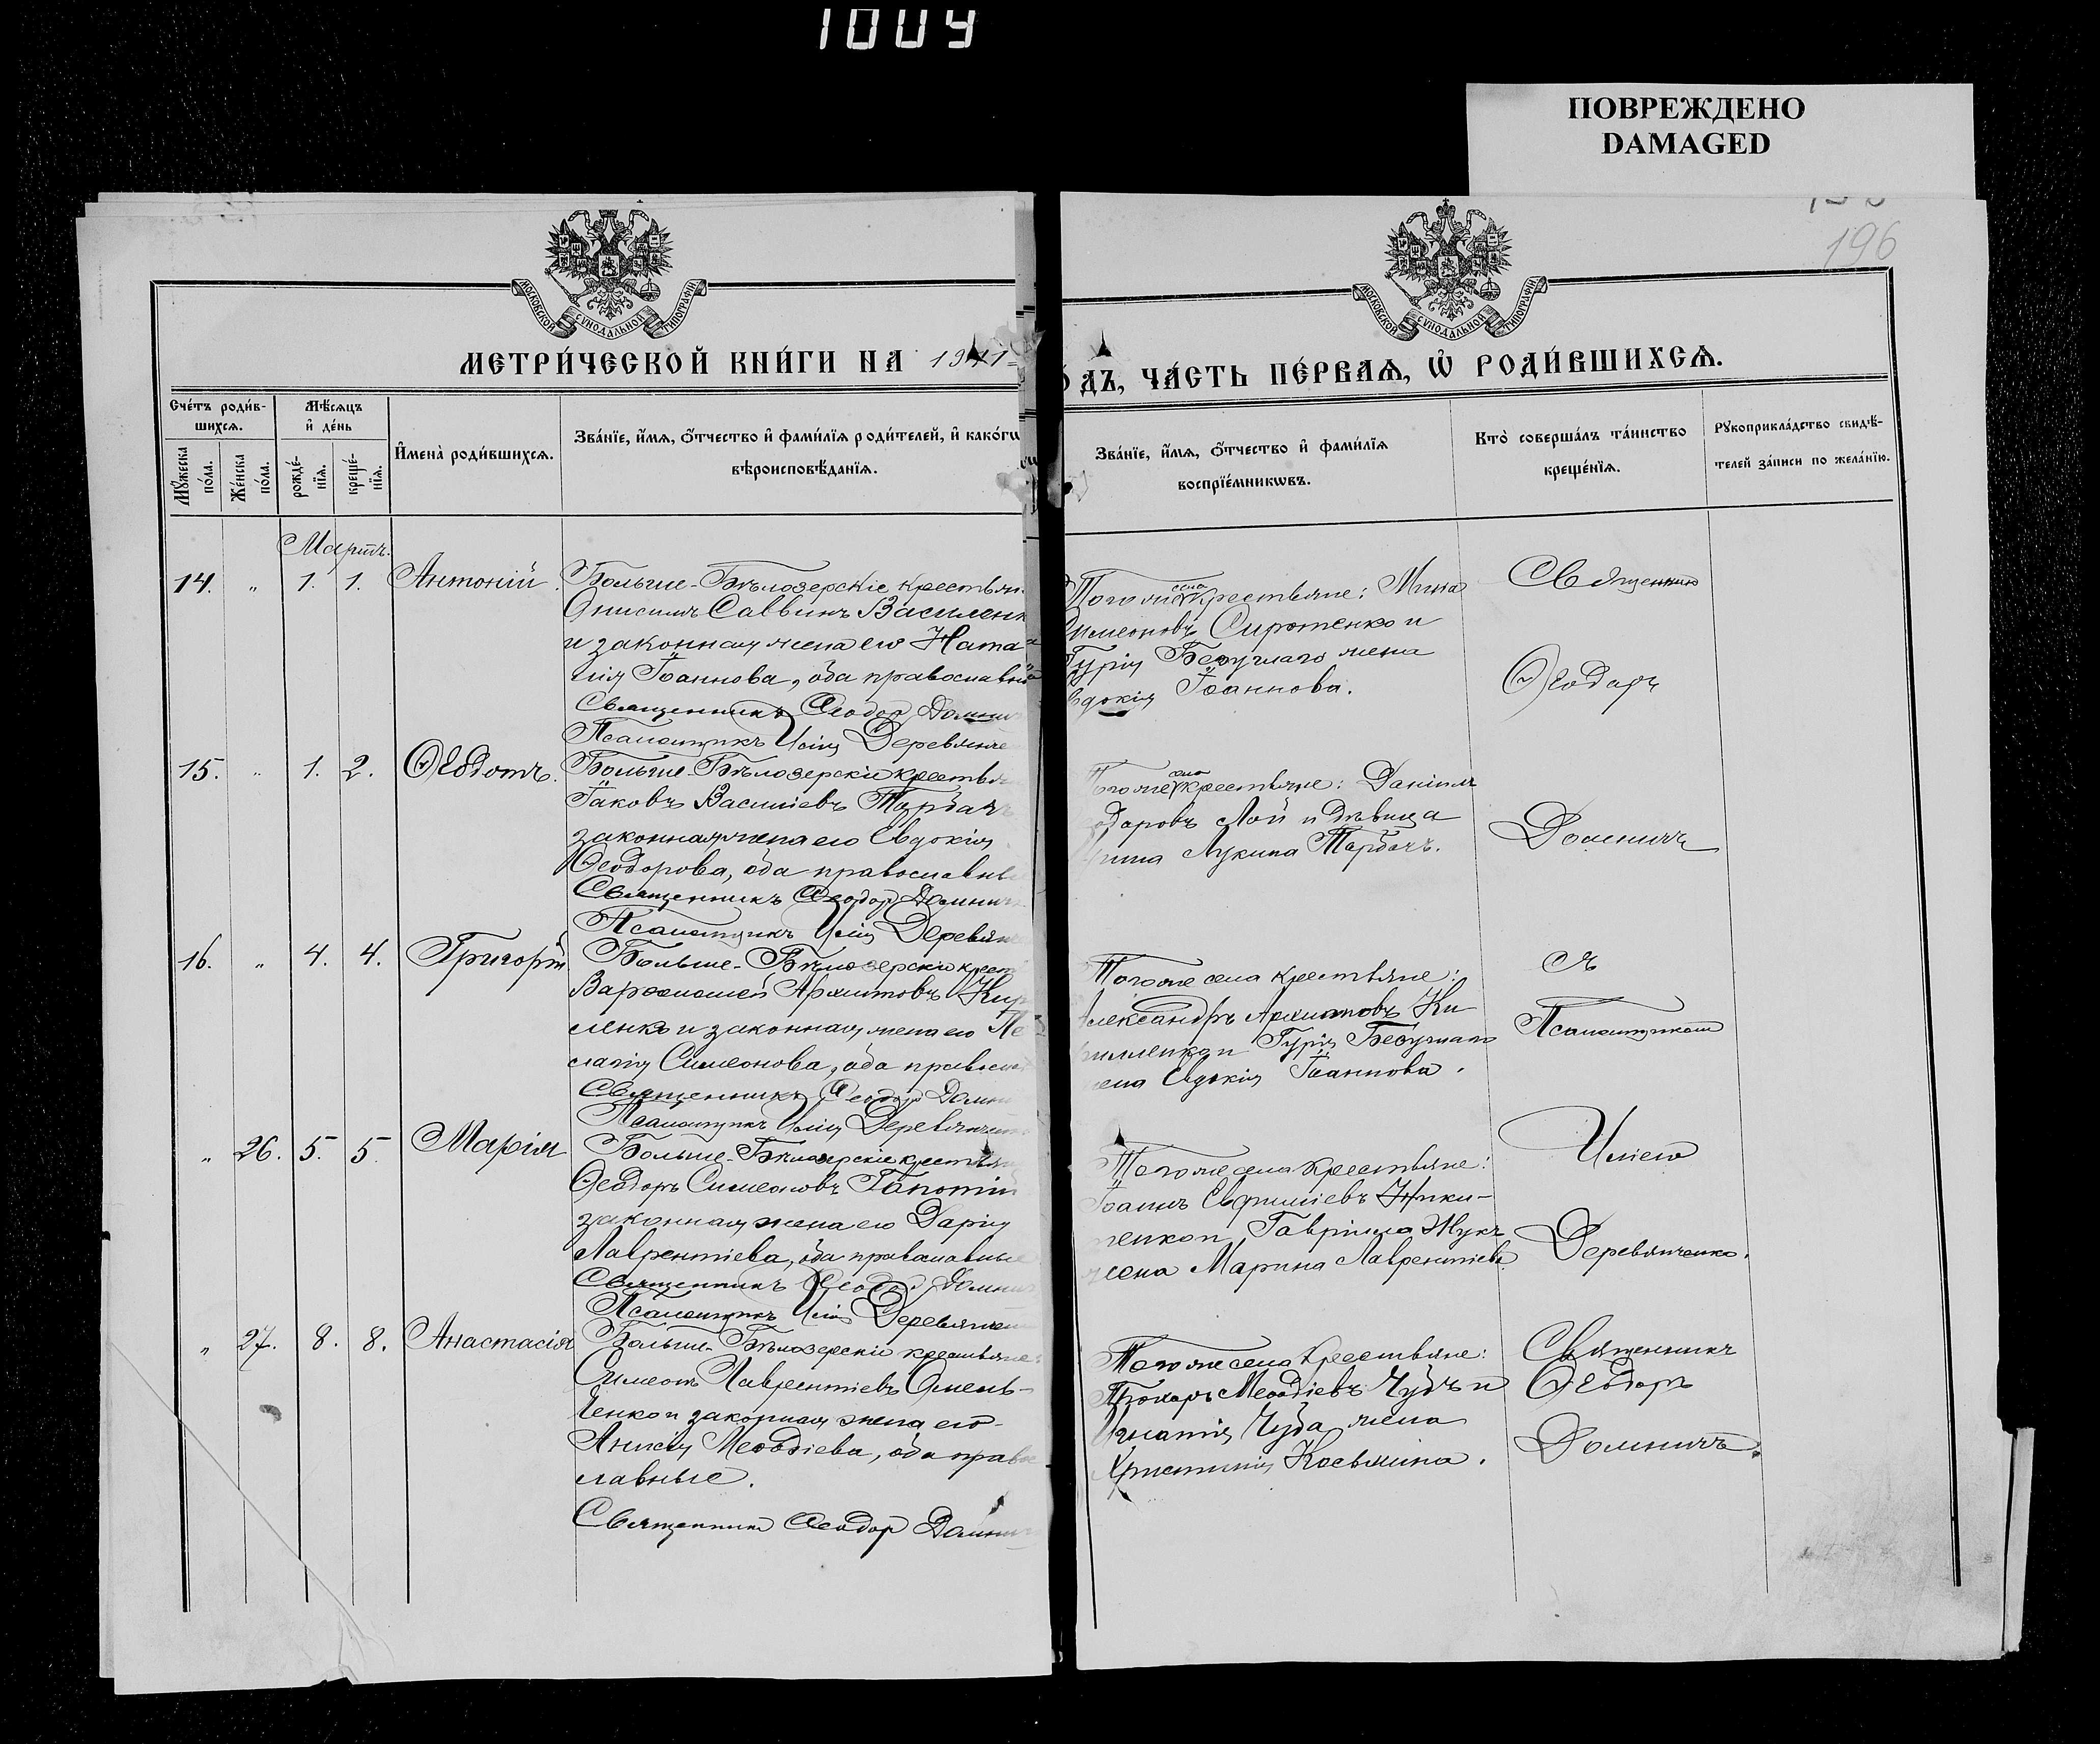 1009
ПОВРЕЖДЕНО
DAMAGED
196
МОСКОВСКОЙ СѴНОДАЛЬНОЙ ТИПОГРАФІИ
МОСКОВСКОЙ СѴНОДАЛЬНОЙ ТИПОГРАФІИ
МЕТРИ́ЧЕСКОЙ КНИ́ГИ НА
О́ДЪ, ЧА́СТЬ ПЕ́РВАѦ, Ѡ҆ РОДИ́ВШИХСѦ.
Сче́тъ роди́в-
шихсѧ.
Мѣ́сѧцъ
и҆ де́нь
Мꙋ́жеска по́ла.
Же́нска по́ла.
рожде́-
нїѧ.
креще́-
нїѧ.
И҆мена̀ роди́вшихсѧ.
Зва́нїе, и҆́мѧ, ѻ҆́тчество и҆ фами́лїѧ роди́телей, и҆ како́гѡ
вѣроисповѣ́данїѧ.
Зва́нїе, и҆́мѧ, ѻ҆́тчество и҆ фами́лїѧ
воспрїе́мникѡвъ.
Кто̀ соверша́лъ та́инство
креще́нїѧ.
Рꙋкоприкла́дство свидѣ́-
телей за́писи по жела́нїю.
Мартъ.
14. " 1. 1. Антоній.
Больше-Бѣлозерскіе крестьян
Онисимъ Саввинъ Василенк
и законная жена его Ната
лія Іоаннова, оба православны
Священникъ Ѳеодор Домнич
Псаломщикъ Илія Деревянче
Тогоже села крестьяне: Мина
имеоновъ Сиротенко и
Гурія жена
вдокія Іоаннова.
Священник
Ѳеодоръ
15. " 1. 2. Ѳеодотъ.
Больше-Бѣлозерскіе крестья
Іаковъ Василіевъ
законная жена его Евдокія
Ѳеодорова, оба православны
Священникъ Ѳеодор Домнич
Псаломщикъ Илія Деревян
Тогоже села крестьяне: Даніилъ
одоровъ Лой и дѣвица
Лукина
Домничъ
16. " 4. 4. Григорій
Больше-Бѣлозерскіе крест
Варѳоломей Архиповъ Кир
ленко и законная жена его Пе
лагія Симеонова, оба правосла
Священникъ Ѳеодор Домни
Псаломщикъ Илія Деревянчен
Тогоже села крестьяне:
Александръ Архиповъ Ки
рилленко и Гурія
жена Евдокія Іоаннова.
съ
Псаломщикомъ
" 26. 5. 5. Марія
Больше-Бѣлозерскіе крестьян
Ѳеодоръ Симеоновъ
законная жена его Дарія
Лаврентіева, оба православные
Священникъ Ѳеодор Домнич
Псаломщикъ Илія Деревянчен
Тогоже села крестьяне:
Іоаннъ Евѳиміевъ Ники-
ненко и Гавріила Жукъ
жена Марина Лаврентіева
Иліею
Деревянченко.
" 27. 8. 8. Анастасія
Больше-Бѣлозерскіе крестьяне:
Симеонъ Лаврентіевъ Омель-
ченко и законная жена его
Анисія Меѳодіева, оба право
славные.
Священникъ Ѳеодор Домнич
Тогоже села крестьяне:
Прохоръ Меѳодіевъ Чубъ и
Игнатія Чуба жена
Христинія Косьмина.
Священникъ
Ѳеодоръ
Домничъ.